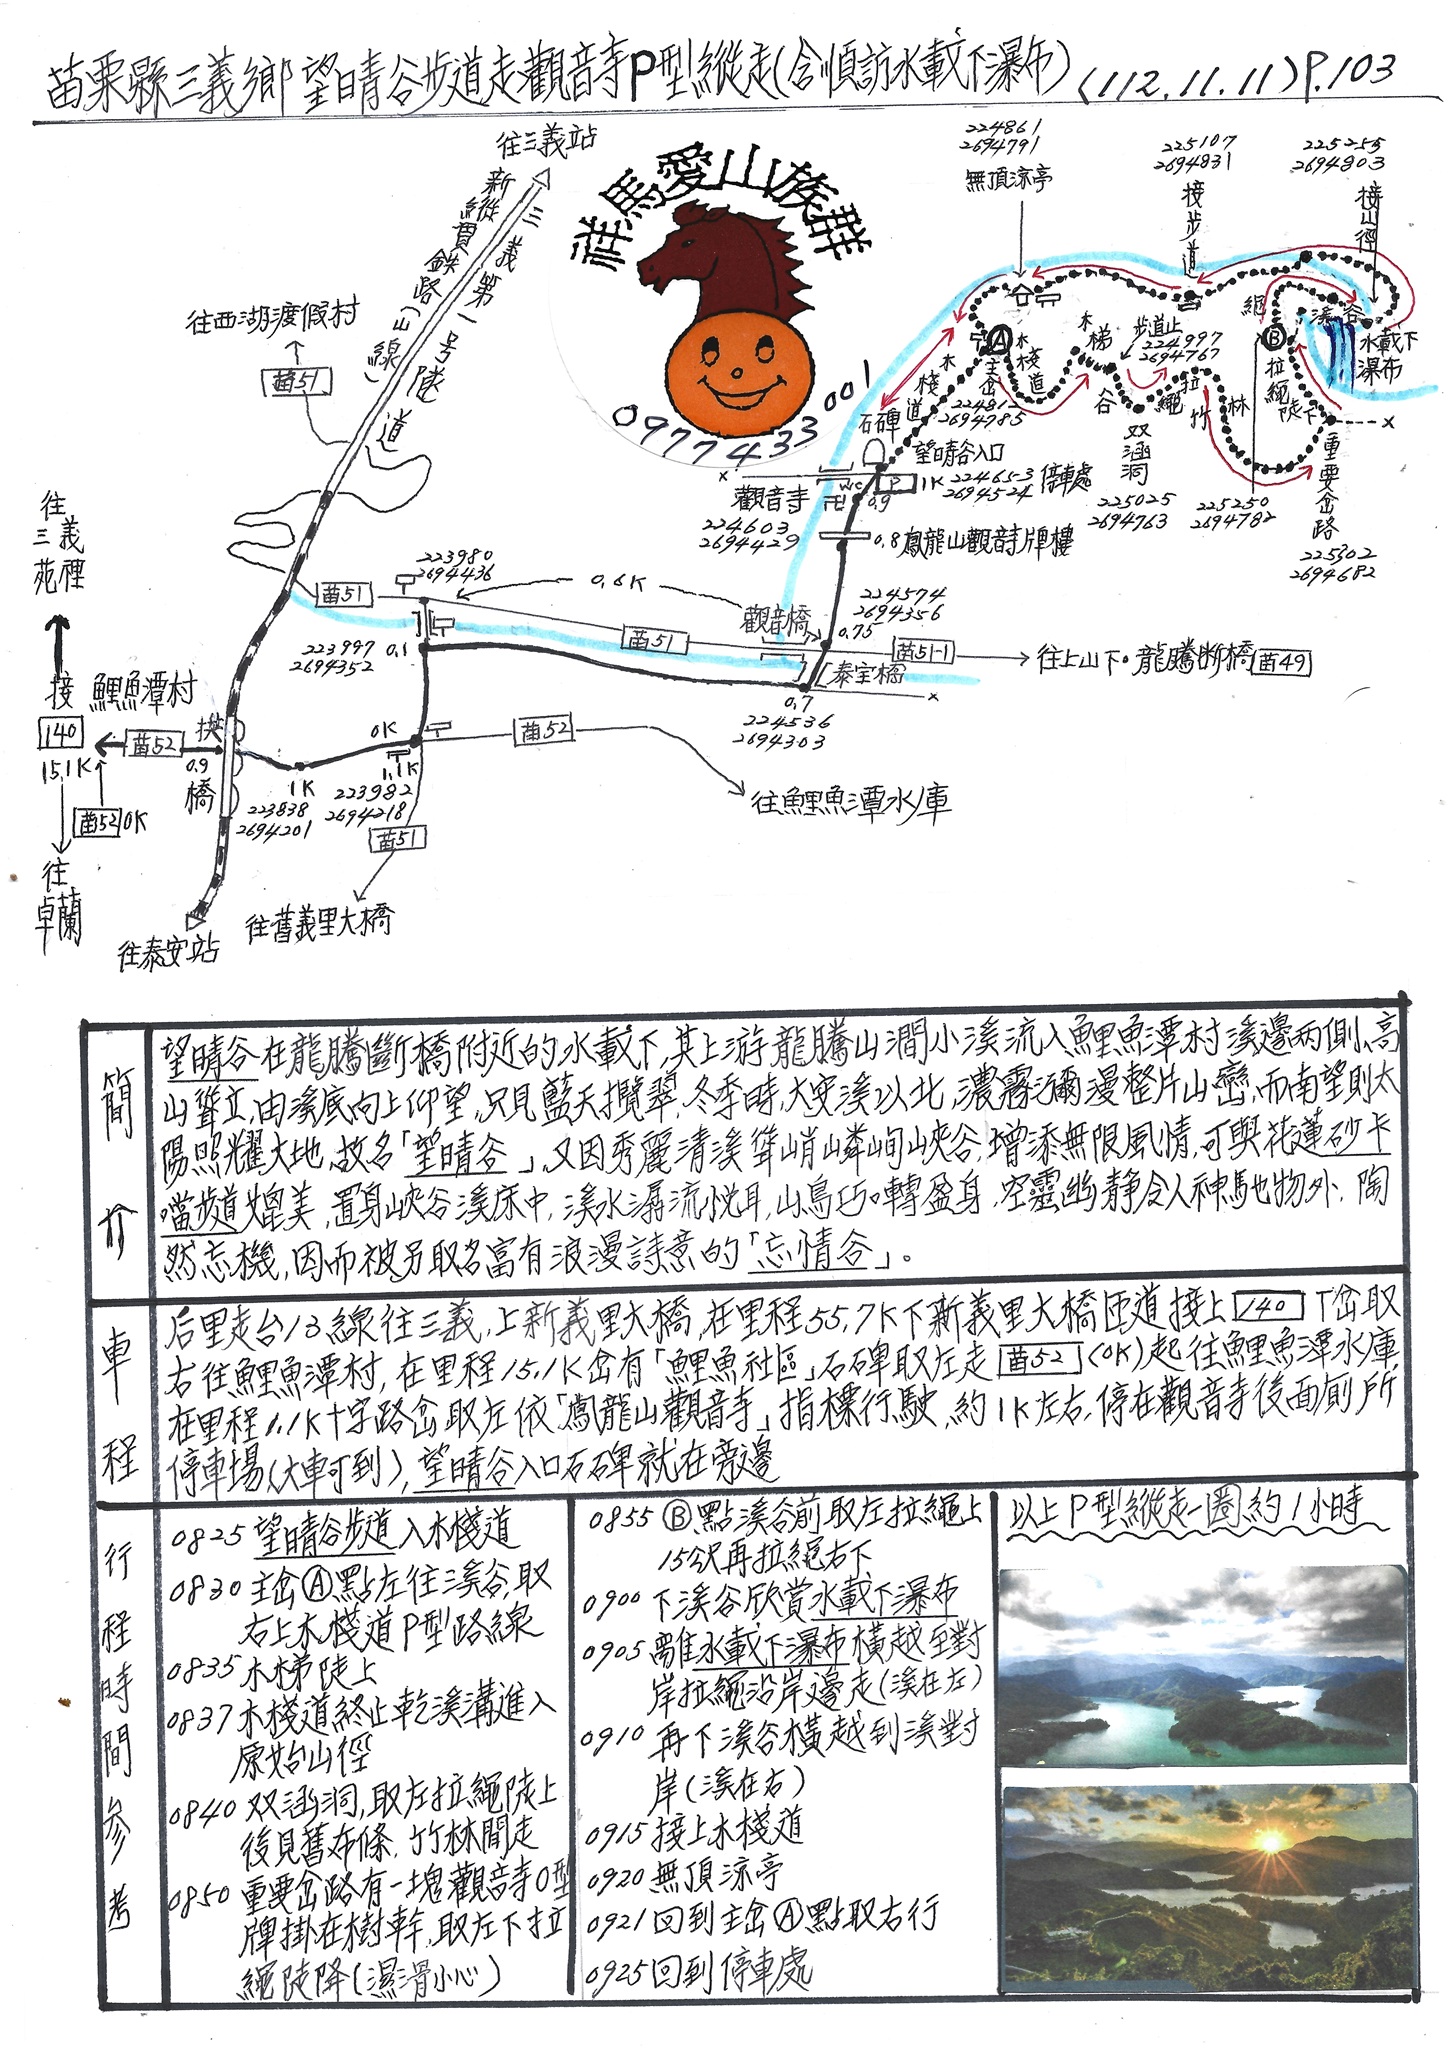 苗栗縣三義鄉望晴谷步道走觀音寺P型縱走(含順訪水載下瀑布)(112.11.11)P.103
往三義站
新縱貫鉄路(山線)
三義第一号隧道
往西湖渡假村
苗51
祥馬愛山族群
0977433001
224861
2694791
無頂涼亭
225107
2694831
接步道
225255
2694803
接山徑
木棧道
A
主岔
木棧道
224812
2694785
木梯
谷
步道止
224997
2694767
双涵洞
225025
2694763
拉繩
竹林
繩
B
拉繩
陡下
溪谷
水載下
瀑布
225250
2694782
重要岔路
225302
2694682
石碑
望晴谷入口
P
1K
224653
2694524
停車處
WC
卍
0.9
觀音寺
224603
2694429
0.8鳳龍山觀音寺牌樓
224574
2694356
0.75
觀音橋
0.6K
苗51
223980
2694436
苗51
苗51-1
往上山下.龍騰斷橋
苗49
泰室橋
0.7
224536
2694303
223997
2694352
0.1
往三義
苑裡
接
140
15.1K
鯉魚潭村
苗52
苗52
0K
往卓蘭
拱橋
0.9
1K
223838
2694201
0K
1.1K
223982
2694218
苗52
往鯉魚潭水庫
苗51
往舊義里大橋
往泰安站
簡介
望晴谷在龍騰斷橋附近的水載下,其上游龍騰山澗小溪流入鯉魚潭村溪邊两側、高
山聳立,由溪底向上仰望,只見藍天攬翠,冬季時,大安溪以北,濃霧瀰漫整片山巒,而南望則太
陽照耀大地,故名「望晴谷」,又因秀麗清溪聳峭嶙峋峽谷,增添無限風情,可與花蓮砂卡
噹步道媲美,置身峽谷溪床中,溪水潺流悅耳,山鳥巧囀盈身,空靈幽靜令人神馳物外,陶
然忘機,因而被另取名富有浪漫詩意的「忘情谷」。
車程
后里走台13線往三義,上新義里大橋,在里程55.7K下新義里大橋匝道接上140丁岔取
右往鯉魚潭村,在里程15.1K岔有「鯉魚社區」石碑取左走苗52(0K)起往鯉魚潭水庫
在里程1.1K十字路岔取左依「鳳龍山觀音寺」指標行駛,約1K左右,停在觀音寺後面廁所
停車場(大車可到),望晴谷入口石碑就在旁邊
行程時間參考
0825望晴谷步道入木棧道
0830主岔A點左往溪谷,取
右上木棧道P型路線
0835木梯陡上
0837木棧道終止乾溪溝進入
原始山徑
0840双涵洞,取左拉繩陡上
後見舊布條,竹林間走
0850重要岔路有一塊觀音寺O型
牌掛在樹幹,取左下拉
繩陡降(濕滑小心)
0855B點溪谷前取左拉繩上
15公尺再拉繩右下
0900下溪谷欣賞水載下瀑布
0905離水載下瀑布橫越至對
岸拉繩沿岸邊走(溪在左)
0910再下溪谷橫越到溪對
岸(溪在右)
0915接上木棧道
0920無頂涼亭
0921回到主岔A點取右行
0925回到停車處
以上P型縱走一圈約1小時